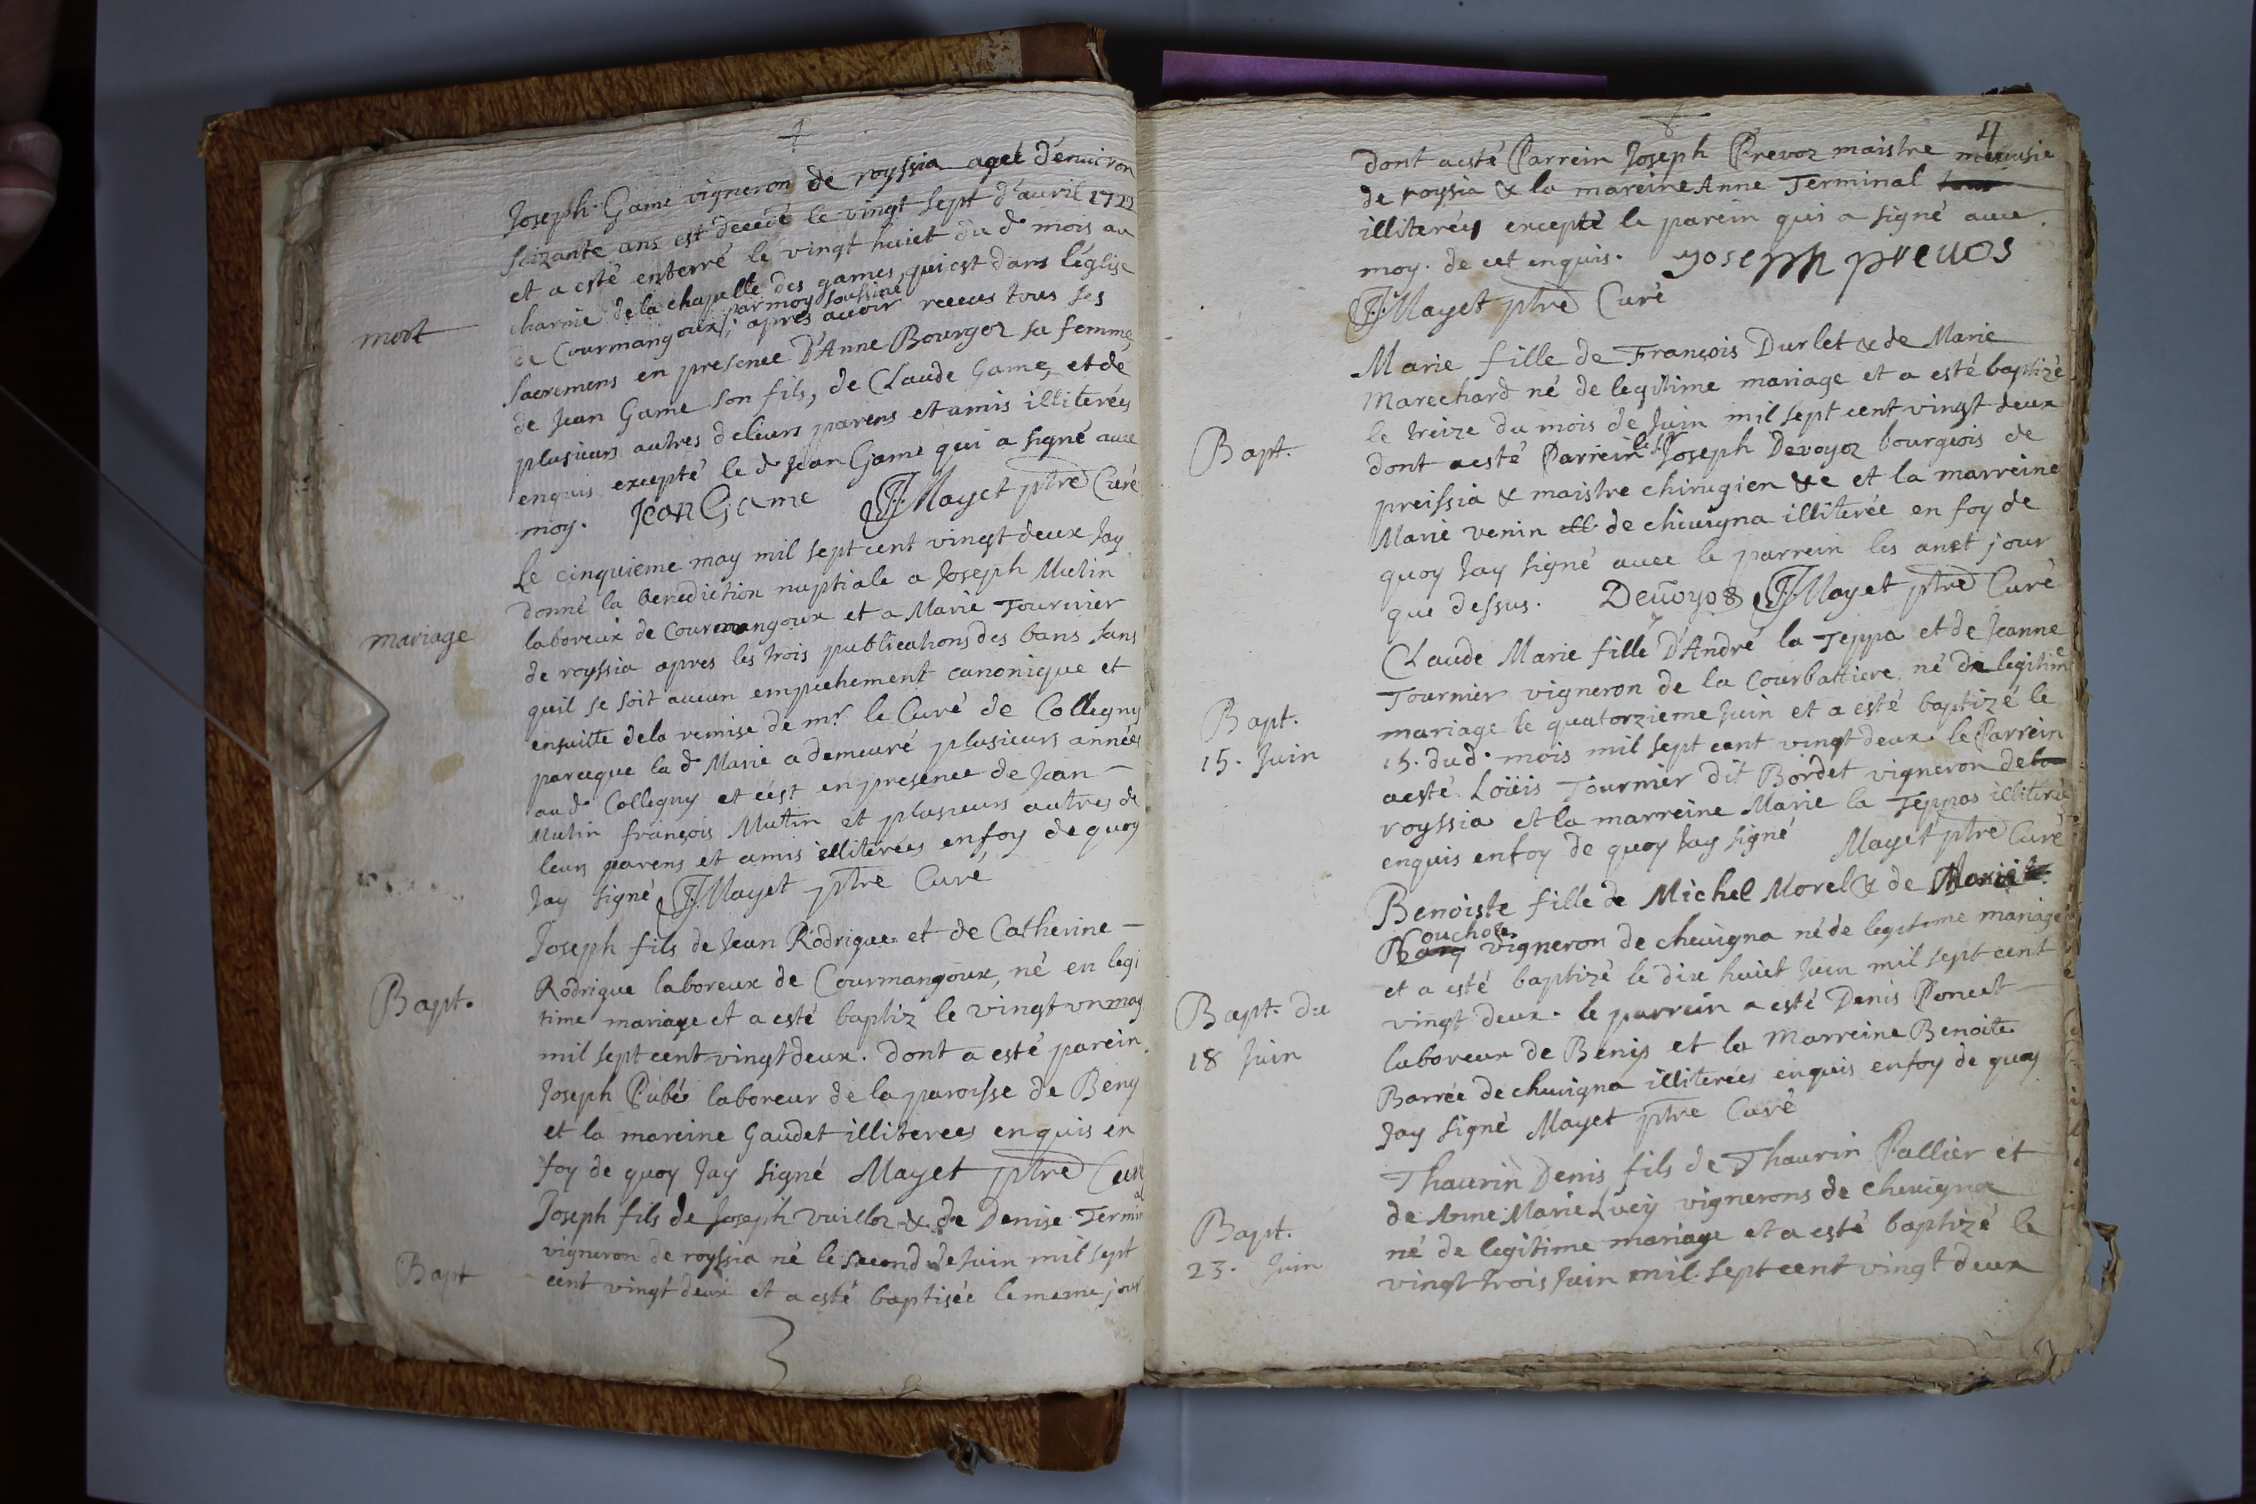 Joseph Game vigneron de royssia aget d'enuiron
soizante ans est decedé le vingt sept d'auril 1722
et a esté enterré le vingt huict du d. mois au
charnie de la chapelle des games qui est dans l'église
de Courmangoux par moy soussiné, apres auoir receus tous ses
mort
sacremens en presence D'Anne Bourgoz sa femme,
de Jean Game son fils, de Claude Game, et de
plusieurs autres de leurs parens et amis illiterées
enquis excepté le d. Jean Game qui a signé auec
moy. Jean Game JJ. Mayet ptre Curé
Le cinquieme may mil sept cent vingt deux Jay
donné la benediction nuptiale a Joseph Mutin
laboreux de Courmangoux et a Marie Tournier
mariage
de royssia apres les trois publications des bans sans
quil se soit aucun empechement canonique et
ensuitte de la remise de mr. le Curé de Collegny
parceque la d. Marie a demeuré plusieurs années
au d. Collegny et c'est en presence de Jean
Mutin françois Mutin et plusieurs autres de
leurs parens et amis illiterées en foy de quoy
Jay signé JJ. Mayet ptre Curé
Joseph fils de Jean Rodrigue et de Catherine
Rodrigue laboreux de Courmangoux, né en legi
Bapt.
time mariage et a esté baptiz le vingt vn may
mil sept cent vingt deux. dont a esté parein
Joseph Pubée laboreur de la paroisse de Beny
et la mareine Gaudet illiterees enquis en
foy de quoy Jay signé Mayet ptre Curé
Joseph fils de Joseph vuilloz & de Denise Terminal
vigneron de royssia né le second de Juin mil sept
Bapt
cent vingt deux et a esté baptisée le meme jour
4
dont aesté Parrein Joseph Prevoz maistre menusie
de royssia & la mareine Anne Terminal tous
illiterées excepté le parein qui a signé auec
moy. de cet enquis. yoseph preuos
JJ. Mayet ptre Curé
Marie fille de François Durlet & de Marie
Marechard né de legitime mariage et a esté baptizé
le treize du mois de Juin mil sept cent vingt deux
Bapt.
dont aesté Parrein le Sr. Joseph Devoyoz bourgeois de
preissia & maistre chirugien &c et la marreine
Marie venin de cheuigna illiterée en foy de
quoy Jay signé auec le parrein les anet jour
que dessus. Deuoyos JJ. Mayet ptre Curé
Claude Marie fille D'André la Teppa et de Jeanne
Tournier vigneron de la Courbattiere né de legitime
Bapt.
15. Juin
mariage le quatorzieme Juin et a esté baptizé le
15. du d. mois mil sept cent vingt deux. le Parrein
aesté Loüis Tournier dit Bordet vigneron de
royssia et la marreine Marie la Teppas illiterée
enquis en foy de quoy Jay signé Mayet ptre Curé
Benoiste fille de Michel Morel & de Marie
Bouchoz vigneron de cheuigna né de legitime mariage
et a esté baptizé le dix huict Juin mil sept cent
Bapt. du
18 Juin
vingt deux. le parrein a esté Denis Poncet
laboreux de Beniss et la Marreine Benoite
Barrée de cheuigna illiterées enquis en foy de quoy
Jay signé Mayet ptre Curé
Thaurin Denis fils de Thaurin Pallier et
de Anne Marie Lucy vignerons de cheuigna
Bapt.
23. Juin
né de legitime mariage et a esté baptizé le
vingt trois Juin mil sept cent vingt deux